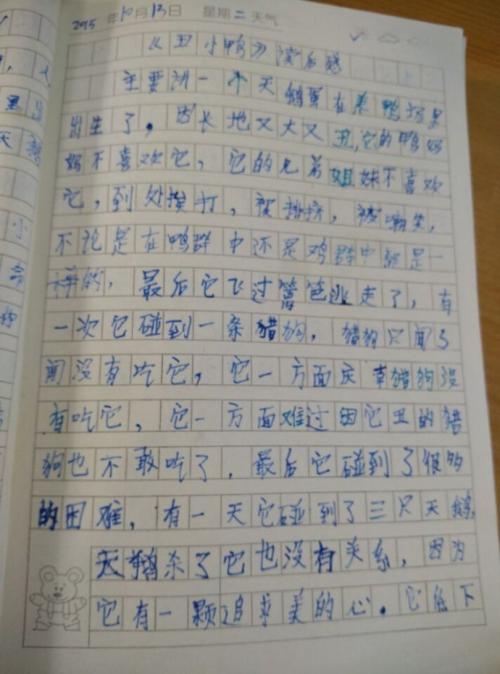 2015年10月13日 星期二天气
《丑小鸭》读后感
主要讲一个天鹅蛋在养鸭场里
出生了。因长地又大又丑,它的鸭妈
妈不喜欢它,它的兄弟姐妹不喜欢
它,到处挨打,被排挤,被嘲笑,
不论是在鸭群中还是鸡群中都是一
样的,最后它飞过篱笆逃走了,有
一次它碰到一条猎狗,猎狗只闻了
闻没有吃它,它一方面庆幸猎狗没
有吃它,它一方面难过因它丑的猎
狗也不敢吃了,最后它碰到了很多
的困难,有一天它碰到了三只天鹅,
天鹅杀了它也没有关系,因为
它有一颗追求美的心。它低下